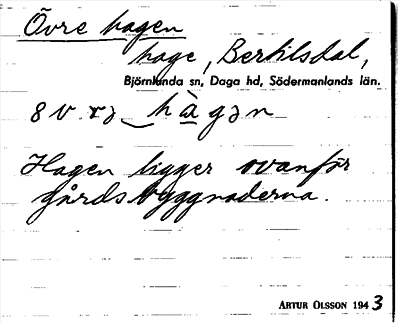 Övre hagen
hage, Bertilsdal,
Björnlunda sn, Daga hd, Södermanlands län.
8 v. rə hàgən
Hagen ligger ovanför
gårdsbyggnaderna.
ARTUR OLSSON 1943